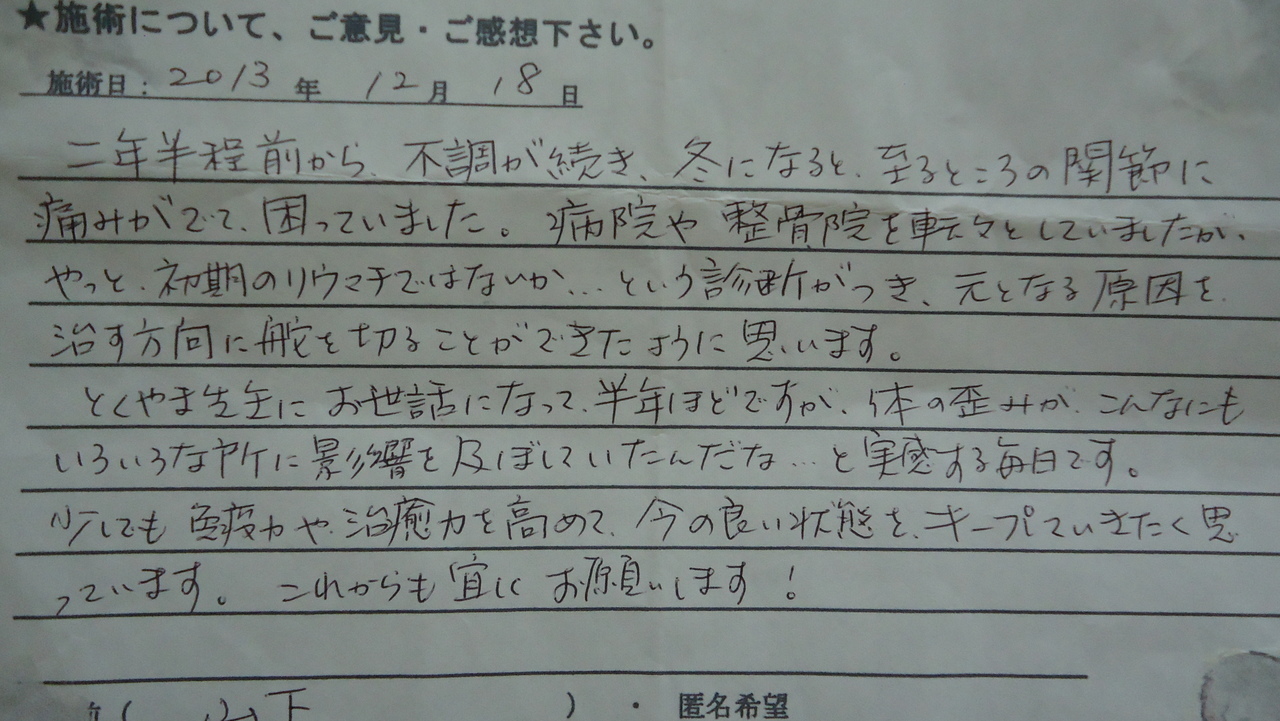 ★施術について、ご意見・ご感想下さい。
施術日：2013年 12月 18日
二年半程前から、不調が続き、冬になると、至るところの関節に
痛みがでて、困っていました。病院や整骨院を転々としていましたが、
やっと、初期のリウマチではないか…という診断がつき、元となる原因を
治す方向に舵を切ることができたように思います。
とくやま先生にお世話になって、半年ほどですが、体の歪みが、こんなにも
いろいろな所に影響を及ぼしていたんだな…と実感する毎日です。
少しでも免疫力や、治癒力を高めて、今の良い状態を、キープしていきたく思
っています。これからも宜しくお願いします！
下 ）・匿名希望